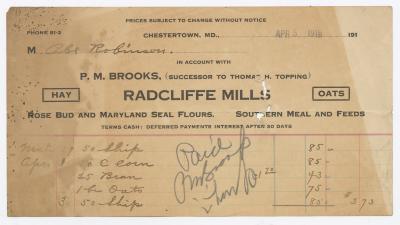 PRICES SUBJECT TO CHANGE WITHOUT NOTICE
PHONE 81-3
CHESTERTOWN, MD., APR 5 1918 191
M Abe Robinson.
IN ACCOUNT WITH
P. M. BROOKS, (SUCCESSOR TO THOMAS H. TOPPING)
HAY RADCLIFFE MILLS OATS
ROSE BUD AND MARYLAND SEAL FLOURS. SOUTHERN MEAL AND FEEDS
TERMS CASH: DEFERRED PAYMENTS INTEREST AFTER 30 DAYS
50 Ship 85
C Corn 85
25 Bran 43
1 bu Oats 75
3 50 Ship 85 3 73
Paid